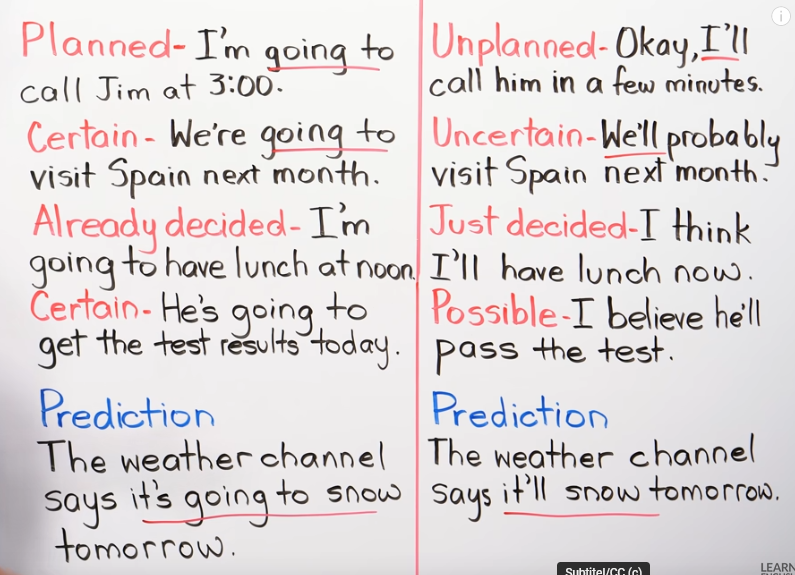 Planned- I'm going to
call Jim at 3:00.
Certain- We're going to
visit Spain next month.
Already decided- I'm
going to have lunch at noon.
Certain- He's going to
get the test results today.
Prediction
The weather channel
says it's going to snow
tomorrow.
Unplanned- Okay, I'll
call him in a few minutes.
Uncertain- We'll probably
visit Spain next month.
Just decided- I think
I'll have lunch now.
Possible- I believe he'll
pass the test.
Prediction
The weather channel
says it'll snow tomorrow.
Subtitel/CC (c)
LEARN